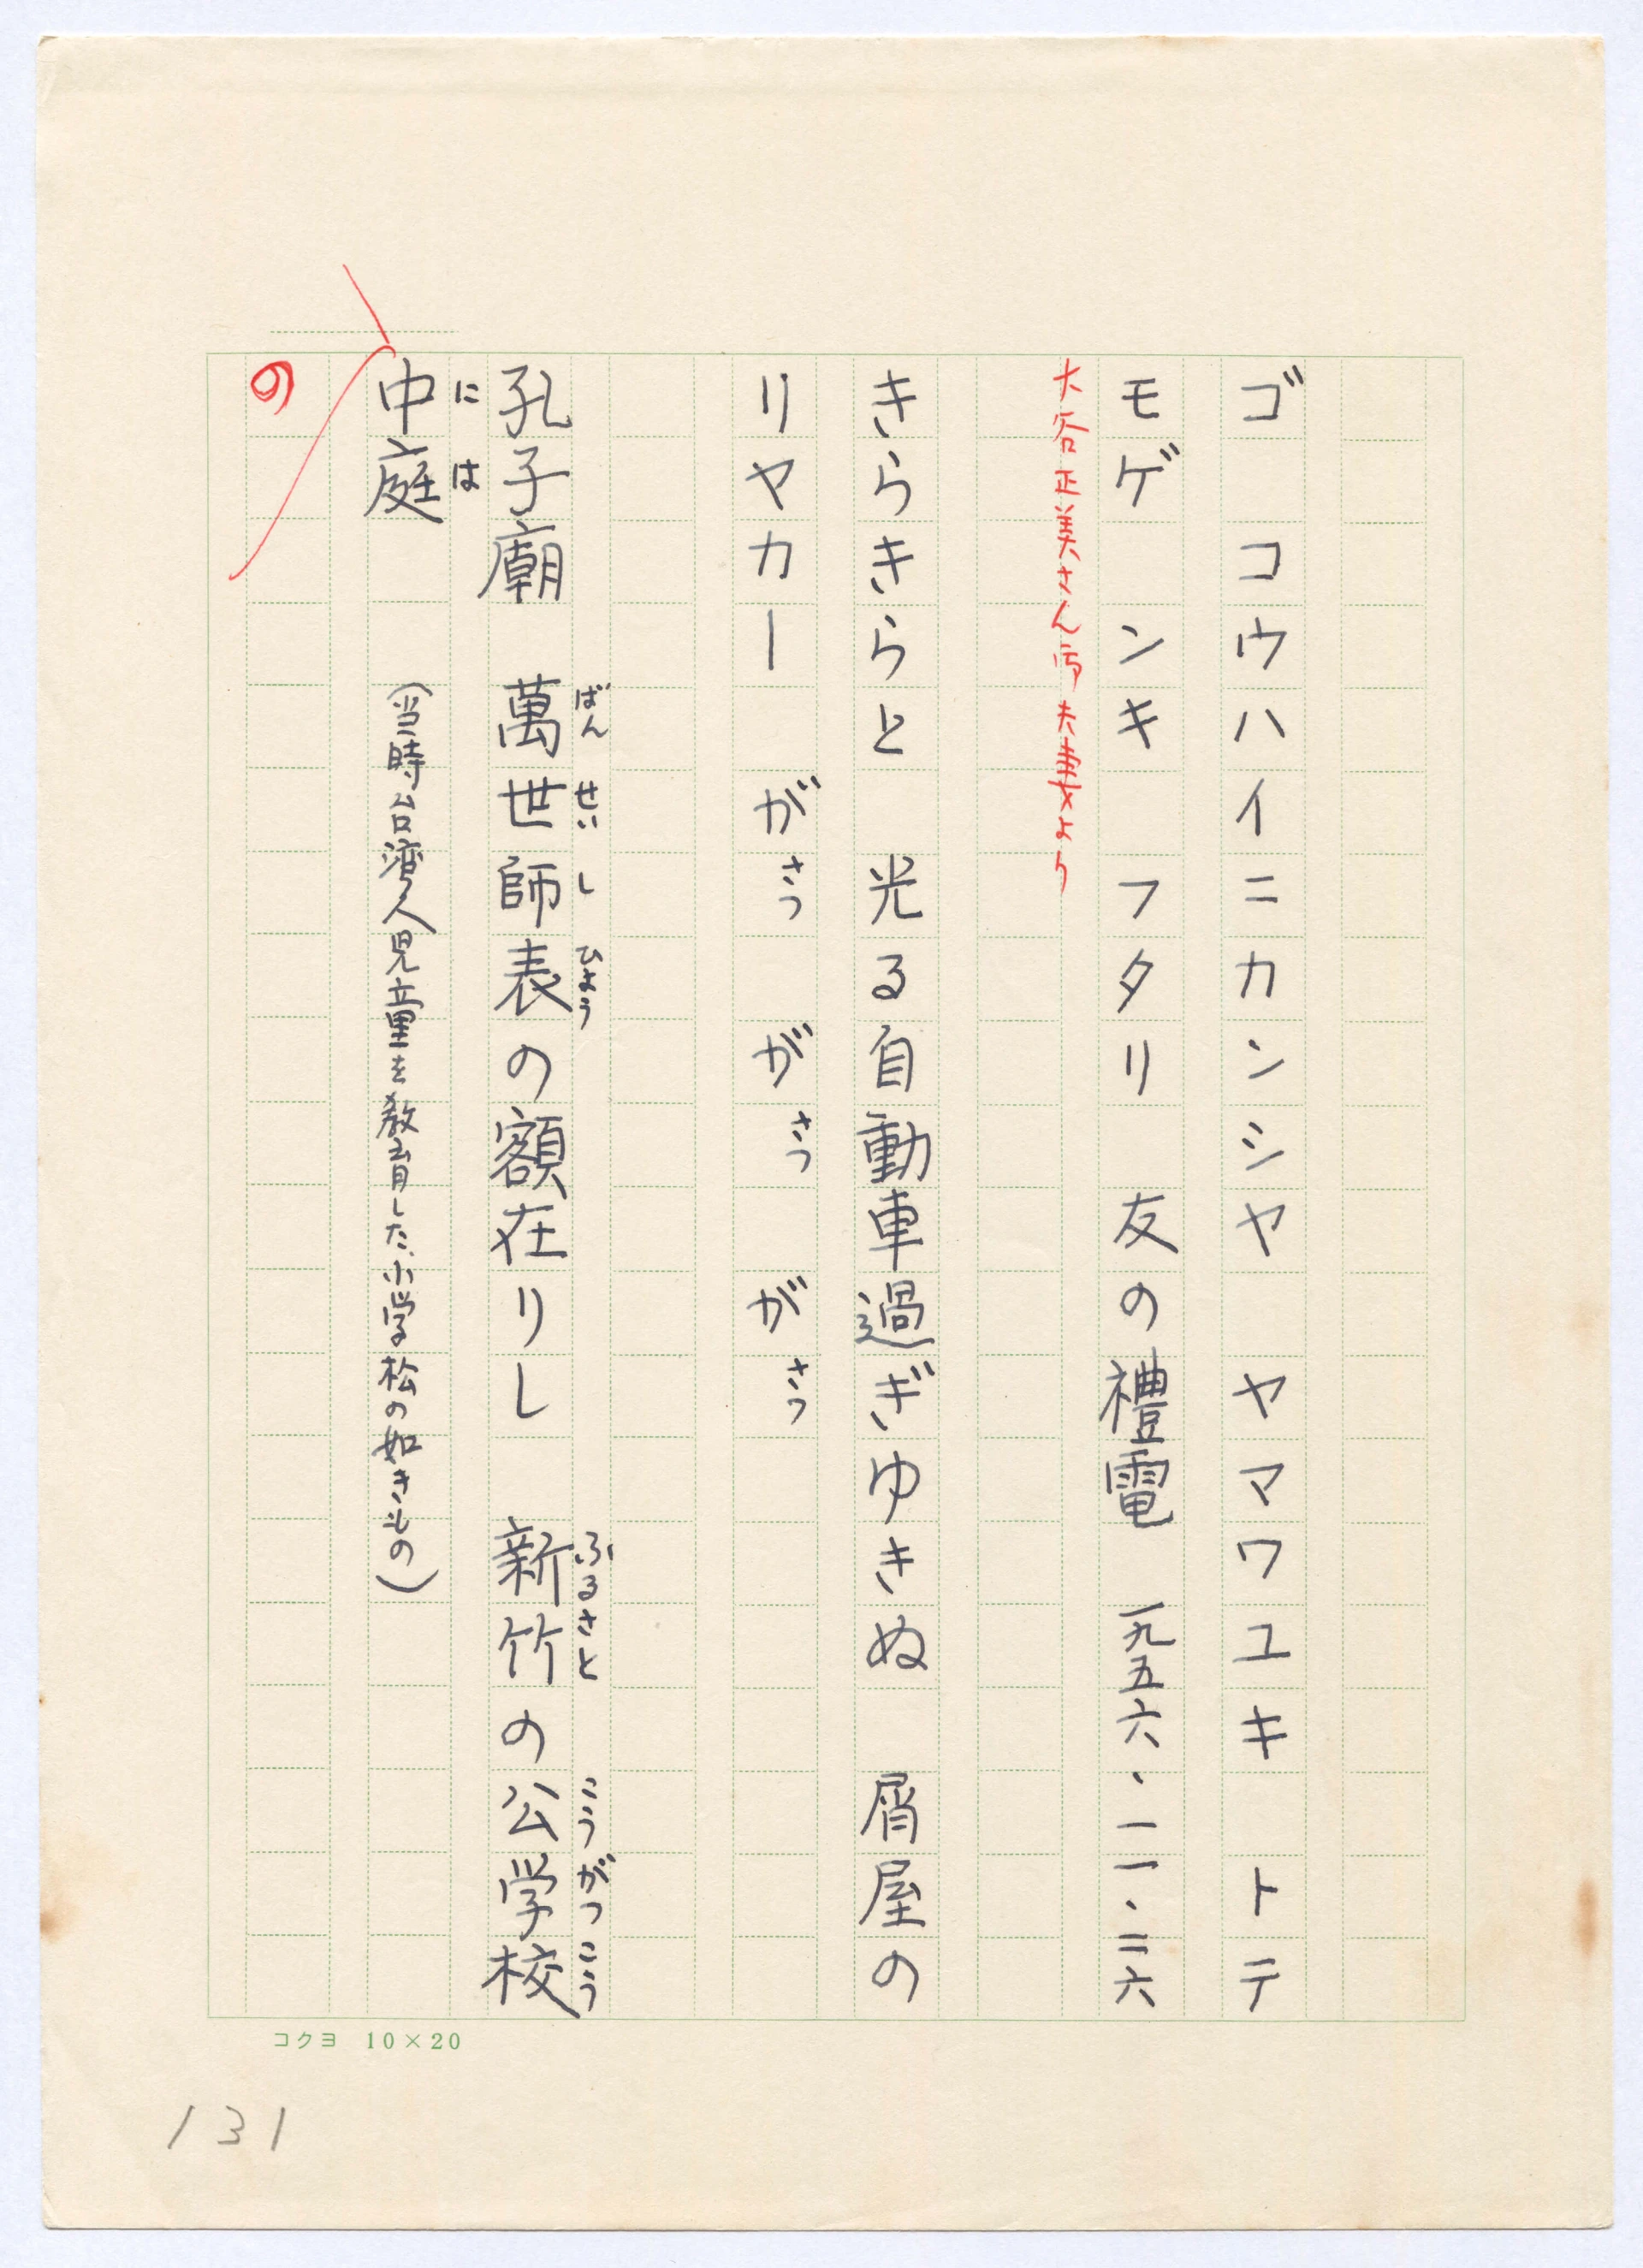 ゴ　コウハイニカンシヤ　ヤマワユキ　トテ
モゲ　ンキ　フタリ　友の禮電　一九五六・一一・二六
大谷正美さん 夫妻より
きらきらと　光る自動車過ぎゆきぬ　屑屋の
リヤカー　がさつ　がさつ　がさつ
孔子廟　萬世師表の額在りし　新竹の公学校
ばん　せい　し　ひょう　ふるさと　こうがつこう
中庭　（当時台湾人児童を教育した、小学校の如きもの）
には
の
コクヨ　10×20
131